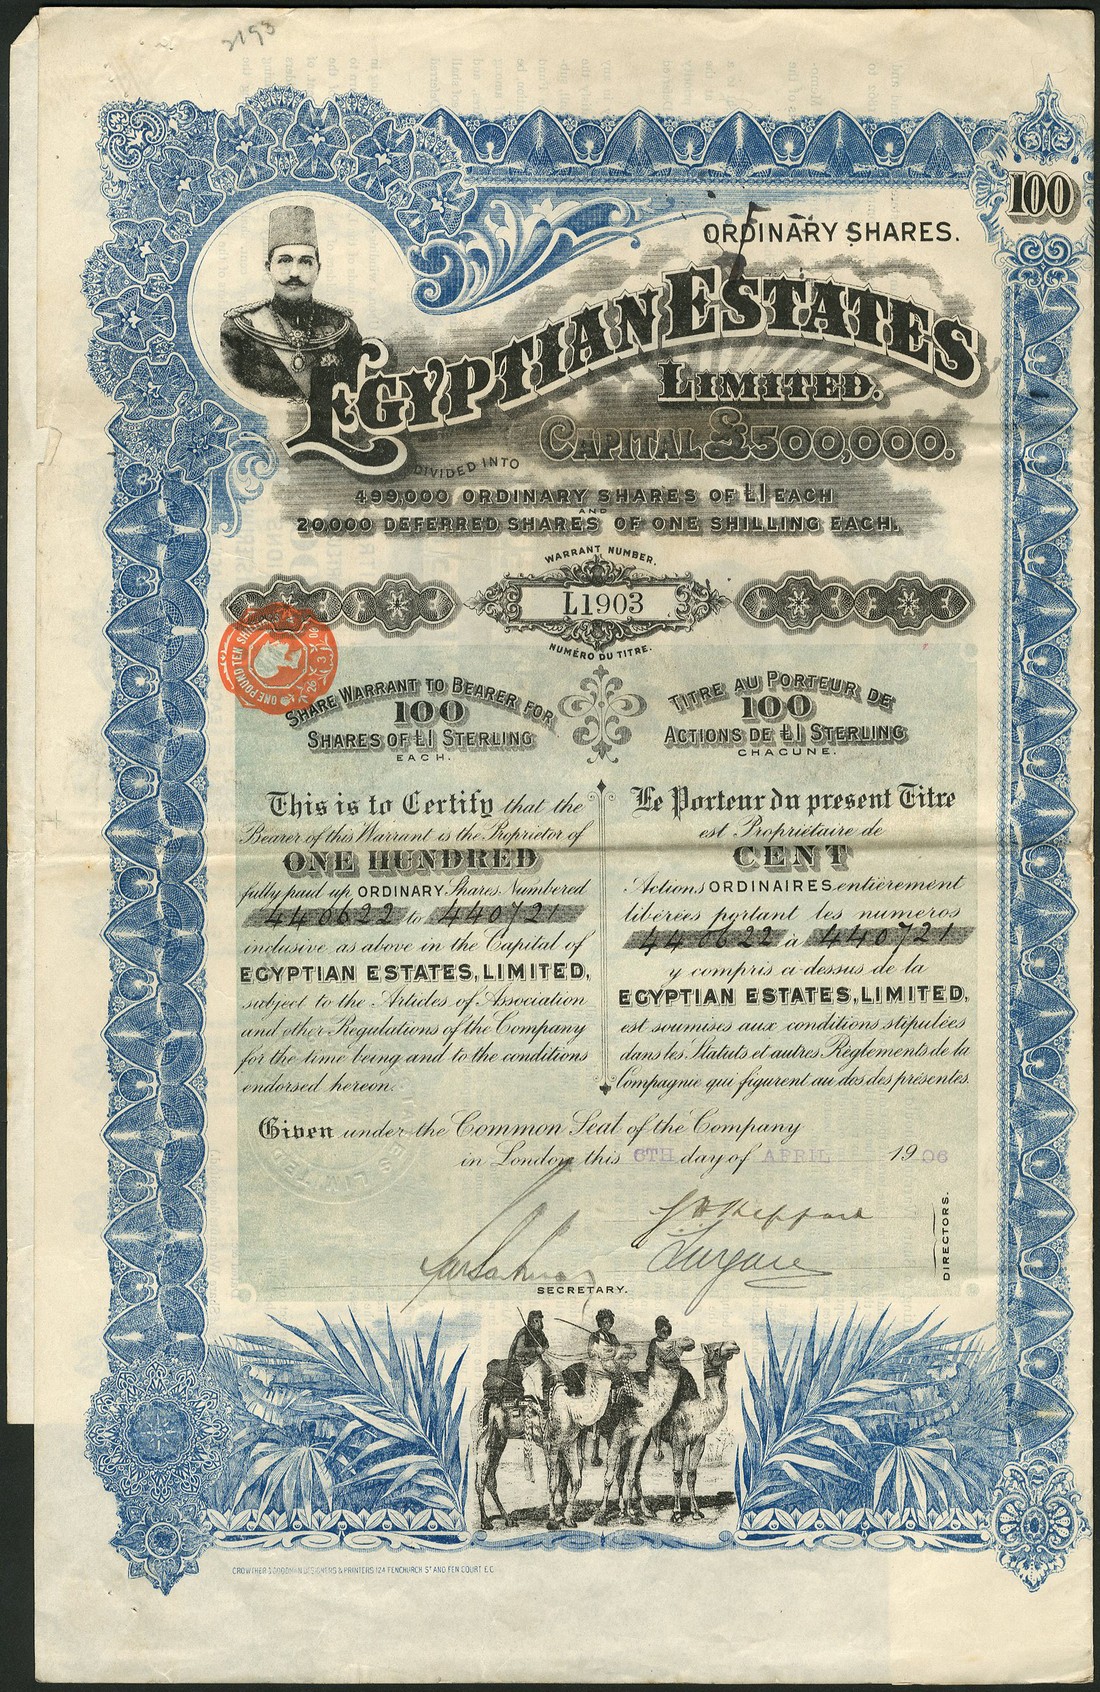 2193
ORDINARY SHARES.
100
EGYPTIAN ESTATES
LIMITED.
CAPITAL £500,000.
DIVIDED INTO
499,000 ORDINARY SHARES OF £1 EACH
AND
20,000 DEFERRED SHARES OF ONE SHILLING EACH.
WARRANT NUMBER.
L1903
NUMÉRO DU TITRE.
ONE POUND TEN SHILLINGS
SHARE WARRANT TO BEARER FOR
100
SHARES OF £1 STERLING
EACH.
TITRE AU PORTEUR DE
100
ACTIONS DE £1 STERLING
CHACUNE.
This is to Certify that the
Bearer of this Warrant is the Proprietor of
ONE HUNDRED
fully paid up ORDINARY Shares Numbered
440622 to 440721
inclusive as above in the Capital of
EGYPTIAN ESTATES, LIMITED,
subject to the Articles of Association
and other Regulations of the Company
for the time being and to the conditions
endorsed hereon.
Le Porteur du present Titre
est Propriétaire de
CENT
Actions ORDINAIRES entièrement
libérées portant les numeros
440622 à 440721
y compris ci dessus de la
EGYPTIAN ESTATES, LIMITED,
est soumises aux conditions stipulées
dans les Statuts et autres Règlements de la
Compagnie qui figurent au dos des présentes.
Given under the Common Seal of the Company
in London this 6TH day of APRIL 1906
DIRECTORS.
SECRETARY.
CROWTHER & GOODMAN DESIGNERS & PRINTERS 124 FENCHURCH ST AND FEN COURT E.C.